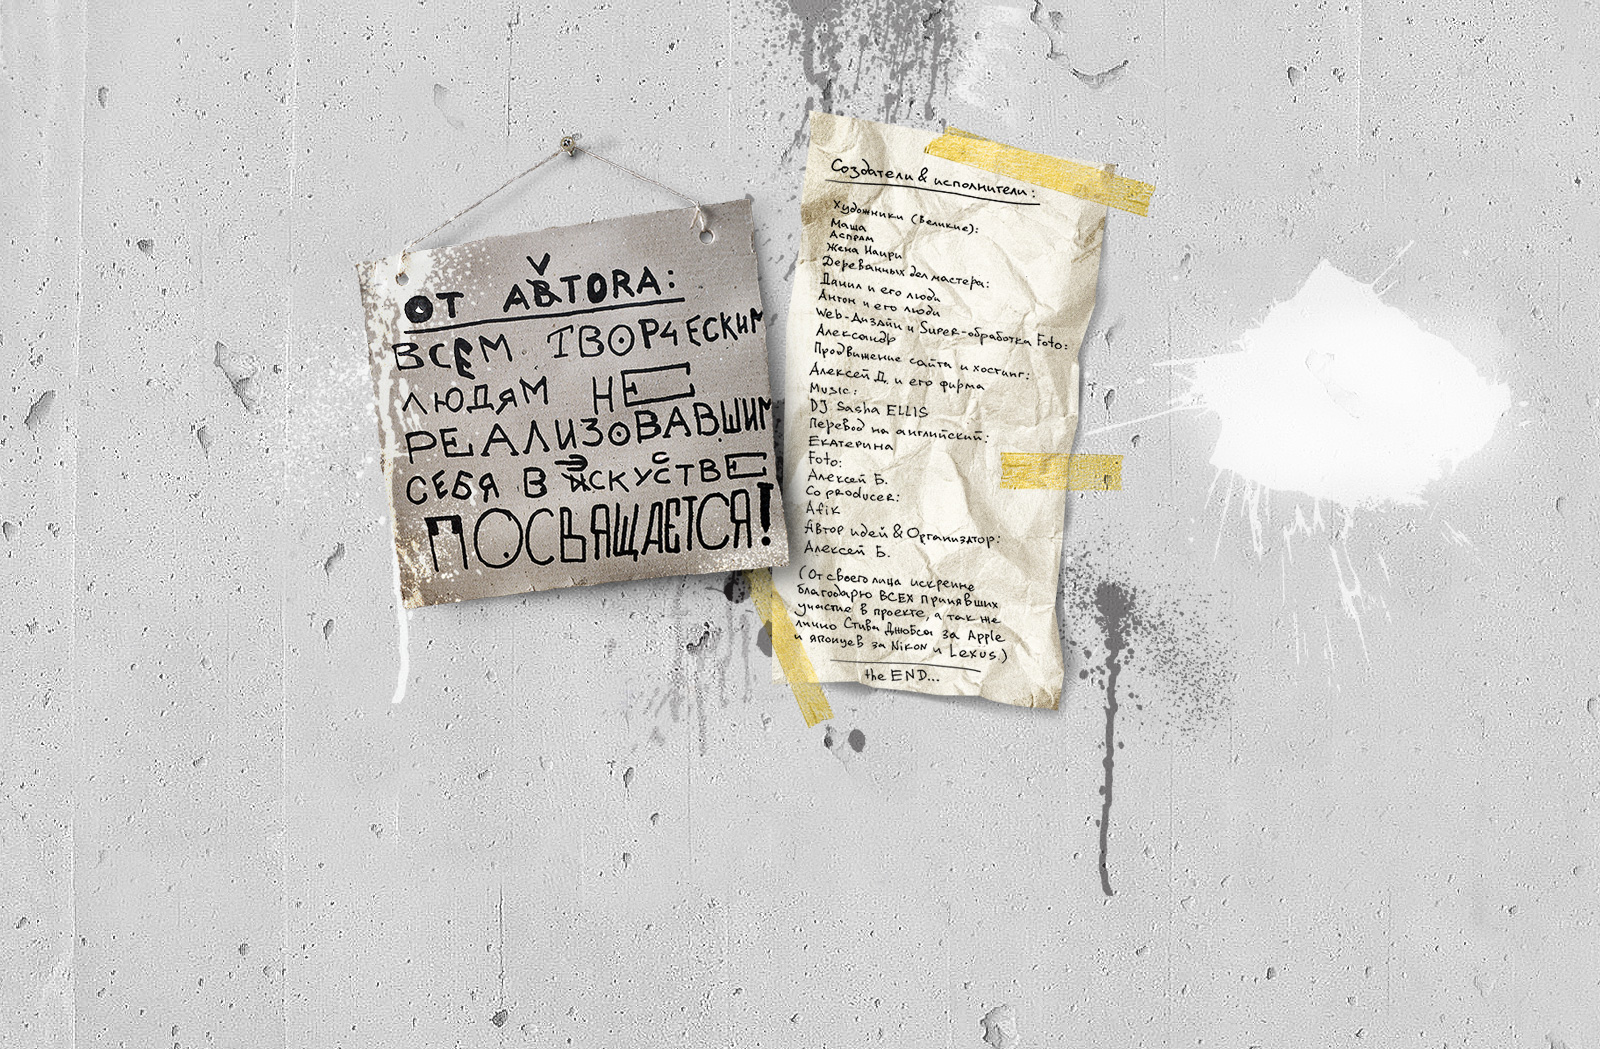 ОТ АВТORA:
ВСЕМ ТВОРЧЕСКИМ
ЛЮДЯМ НЕ
РЕАЛИЗОВАВШИМ
СЕБЯ В ЭСКУССТВЕ
ПОСВЯЩАЕТСЯ!
Создатели & исполнители:
Художники (Великие):
Маша
Аспрам
Жена Наири
Деревянных дел мастера:
Данил и его люди
Антон и его люди
Web-Дизайн и Super-обработка Foto:
Александр
Продвижение сайта и хостинг:
Алексей Д. и его фирма
Music:
DJ Sasha ELLIS
Перевод на английский:
Екатерина
Foto:
Алексей Б.
Co producer:
Afik
Автор идей & Организатор:
Алексей Б.
(От своего лица искренне
благодарю ВСЕХ принявших
участие в проекте, а так же
лично Стива Джобса за Apple
и японцев за Nikon и Lexus)
the END...